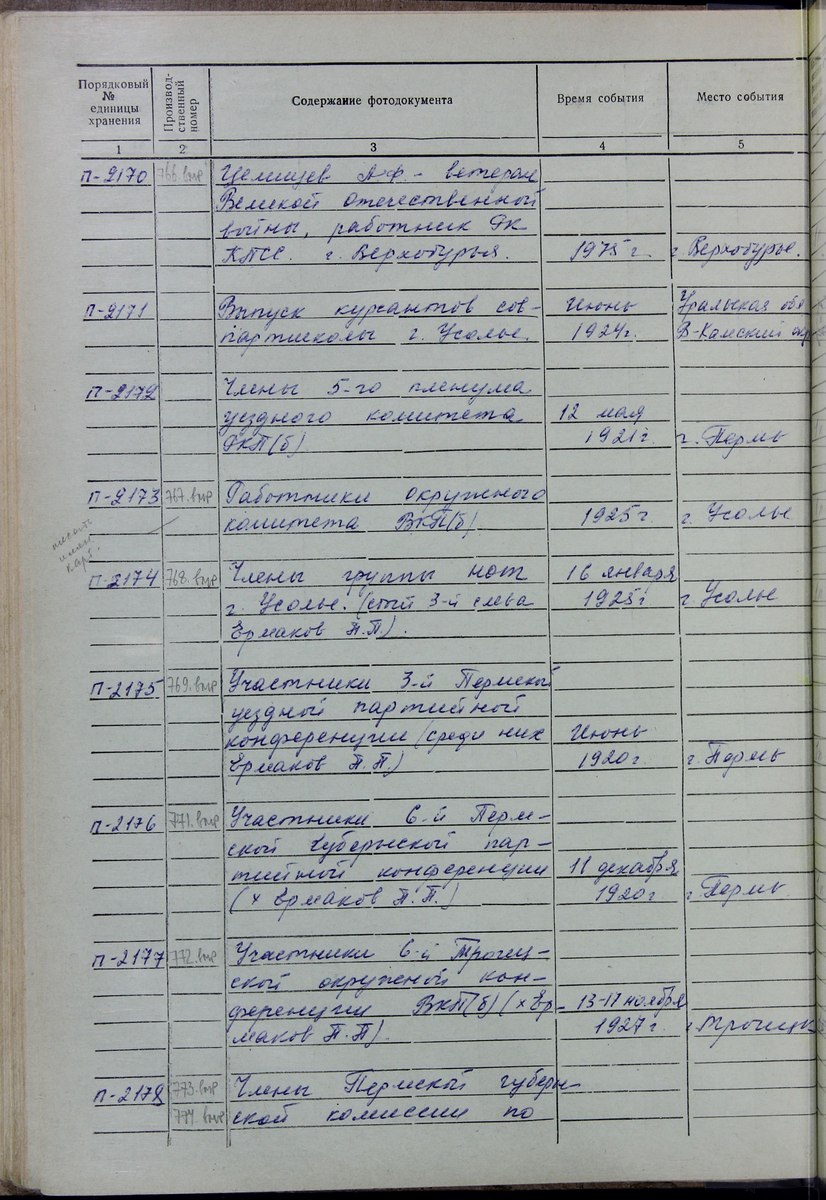 Порядковый № единицы хранения
Производ-ственный номер
Содержание фотодокумента
Время события
Место события
1 2 3 4 5
П-2170 766.вмр Целищев А.Ф. - ветеран
Великой отечественной
войны, работник ГК
КПСС. г. Верхотурья. 1975 г. г. Верхотурье.
П-2171 Выпуск курсантов сов- Июнь Уральская обл
партшколы г. Усолье. 1924г. В-Камский окр
П-2172 Члены 5-го пленума
уездного комитета 12 мая
РКП(б) 1921г. г. Пермь
П-2173 767.вмр Работники окружного
комитета ВКП(б) 1925г. г. Усолье
П-2174 768.вмр Члены группы нот 16 января
г. Усолье. (стоит 3-й слева 1925г г. Усолье
Ермаков П.П.).
П-2175 769.вмр Участники 3-й Пермской
уездной партийной
конференции (среди них Июнь
Ермаков П.П) 1920г. г. Пермь
П-2176 771.вмр Участники 6-й Перм-
ской губернской пар-
тийной конференции 11 декабря
(х Ермаков П.П.) 1920г. г. Пермь
П-2177 772.вмр Участники 6-й Троиц-
ской окружной кон-
ференции ВКП(б) (х Ер- 13-17 ноября
маков П.П). 1927г. г. Троицк
П-2178 773.вмр Члены Пермской губерн-
774.вмр ской комиссии по